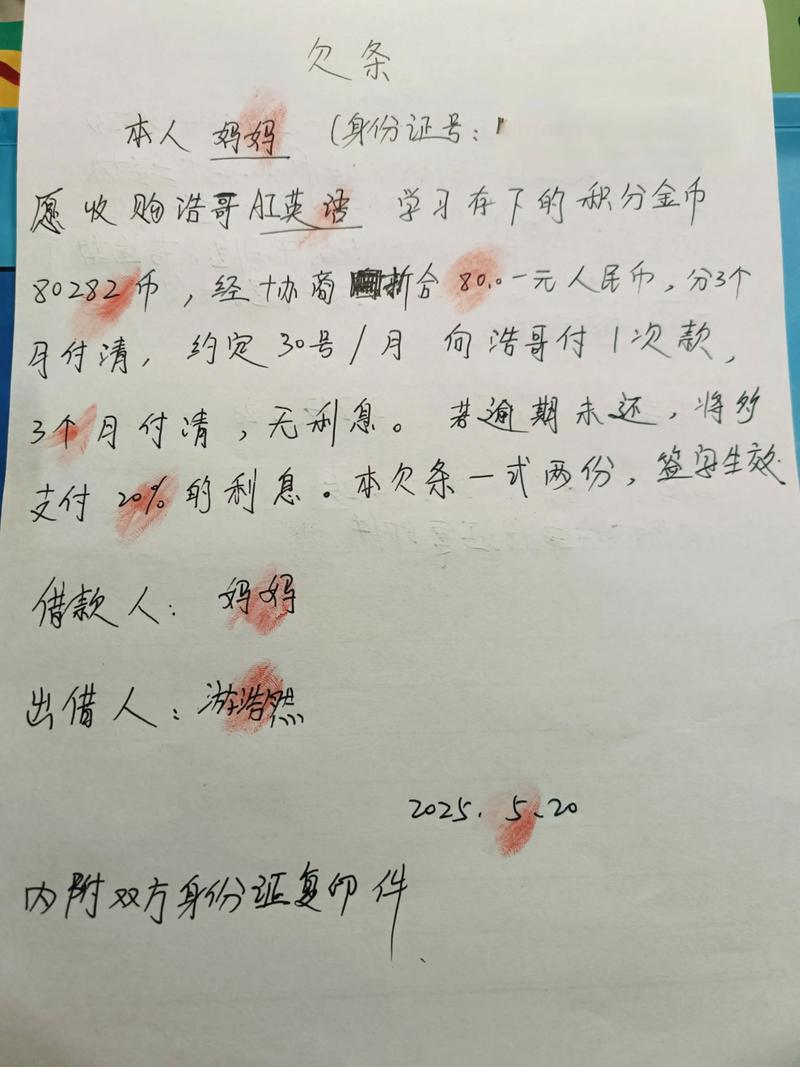 欠条
本人 妈妈 (身份证号:
愿收购浩哥AI英语 学习存下的积分金币
80282币，经协商折合 80.0一元人民币，分3个
月付清，约定30号/月 向浩哥付1次款，
3个月付清，无利息。若逾期未还，将多
支付20%的利息。本欠条一式两份，签字生效
借款人：妈妈
出借人：游浩然
2025.5.20
内附双方身份证复印件